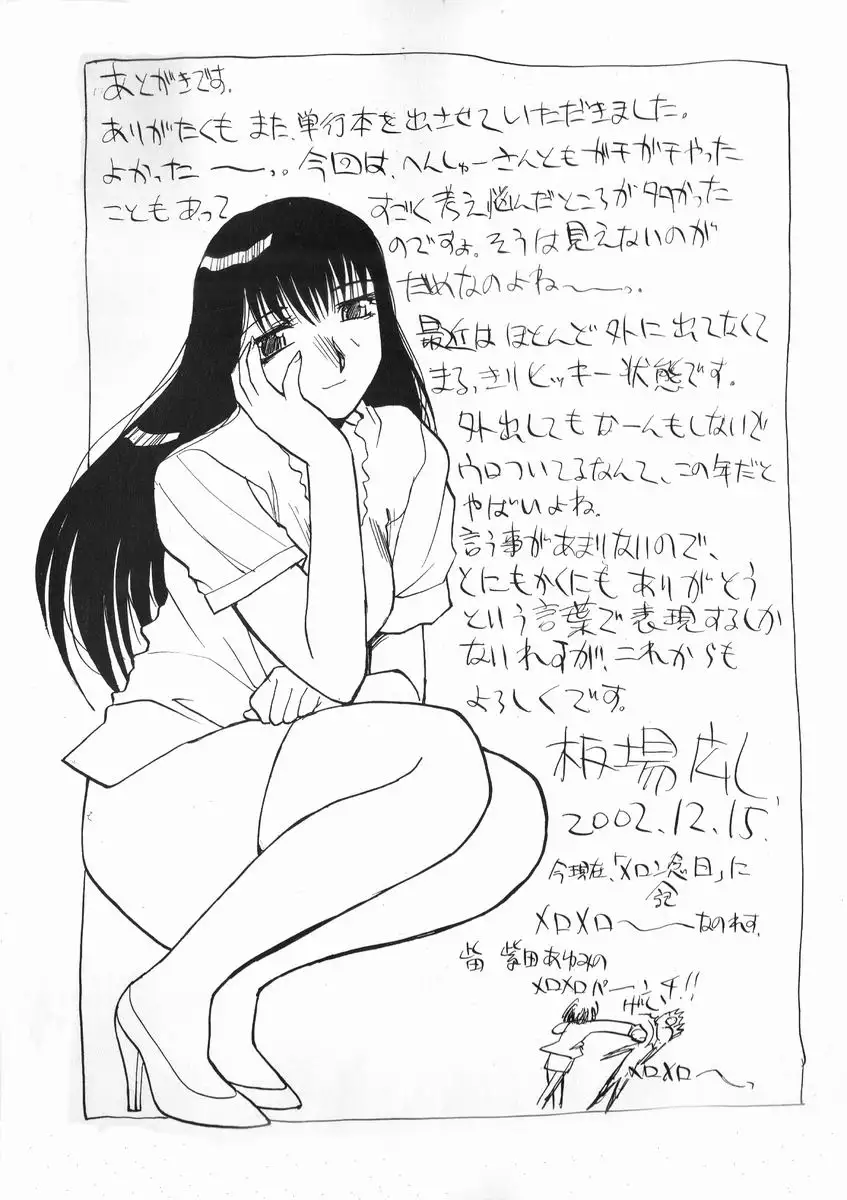 あとがきです。
ありがたくも また、単行本を出させていただきました。
よかった ーっ。今回は、へんしゅーさんともガチガチやった
こともあって すごく考え悩んだところが多かった
のですよ。そうは見えないのが
だめなのよね〜っ。
最近は ほとんど外に出てなくて
まるっきりヒッキー状態です。
外出しても なーんもしないで
ウロついてるなんて、この年だと
やばいよね。
言う事があまりないので、
とにもかくにも ありがとう
という言葉で表現するしか
ないれすが、これからも
よろしくです。
板場広し
2002.12.15.
今現在、「メロン念日」に
記
メロメロ〜なのれす。
柴田あゆみの
メロメロパーンチ!!
メロメロ〜っ